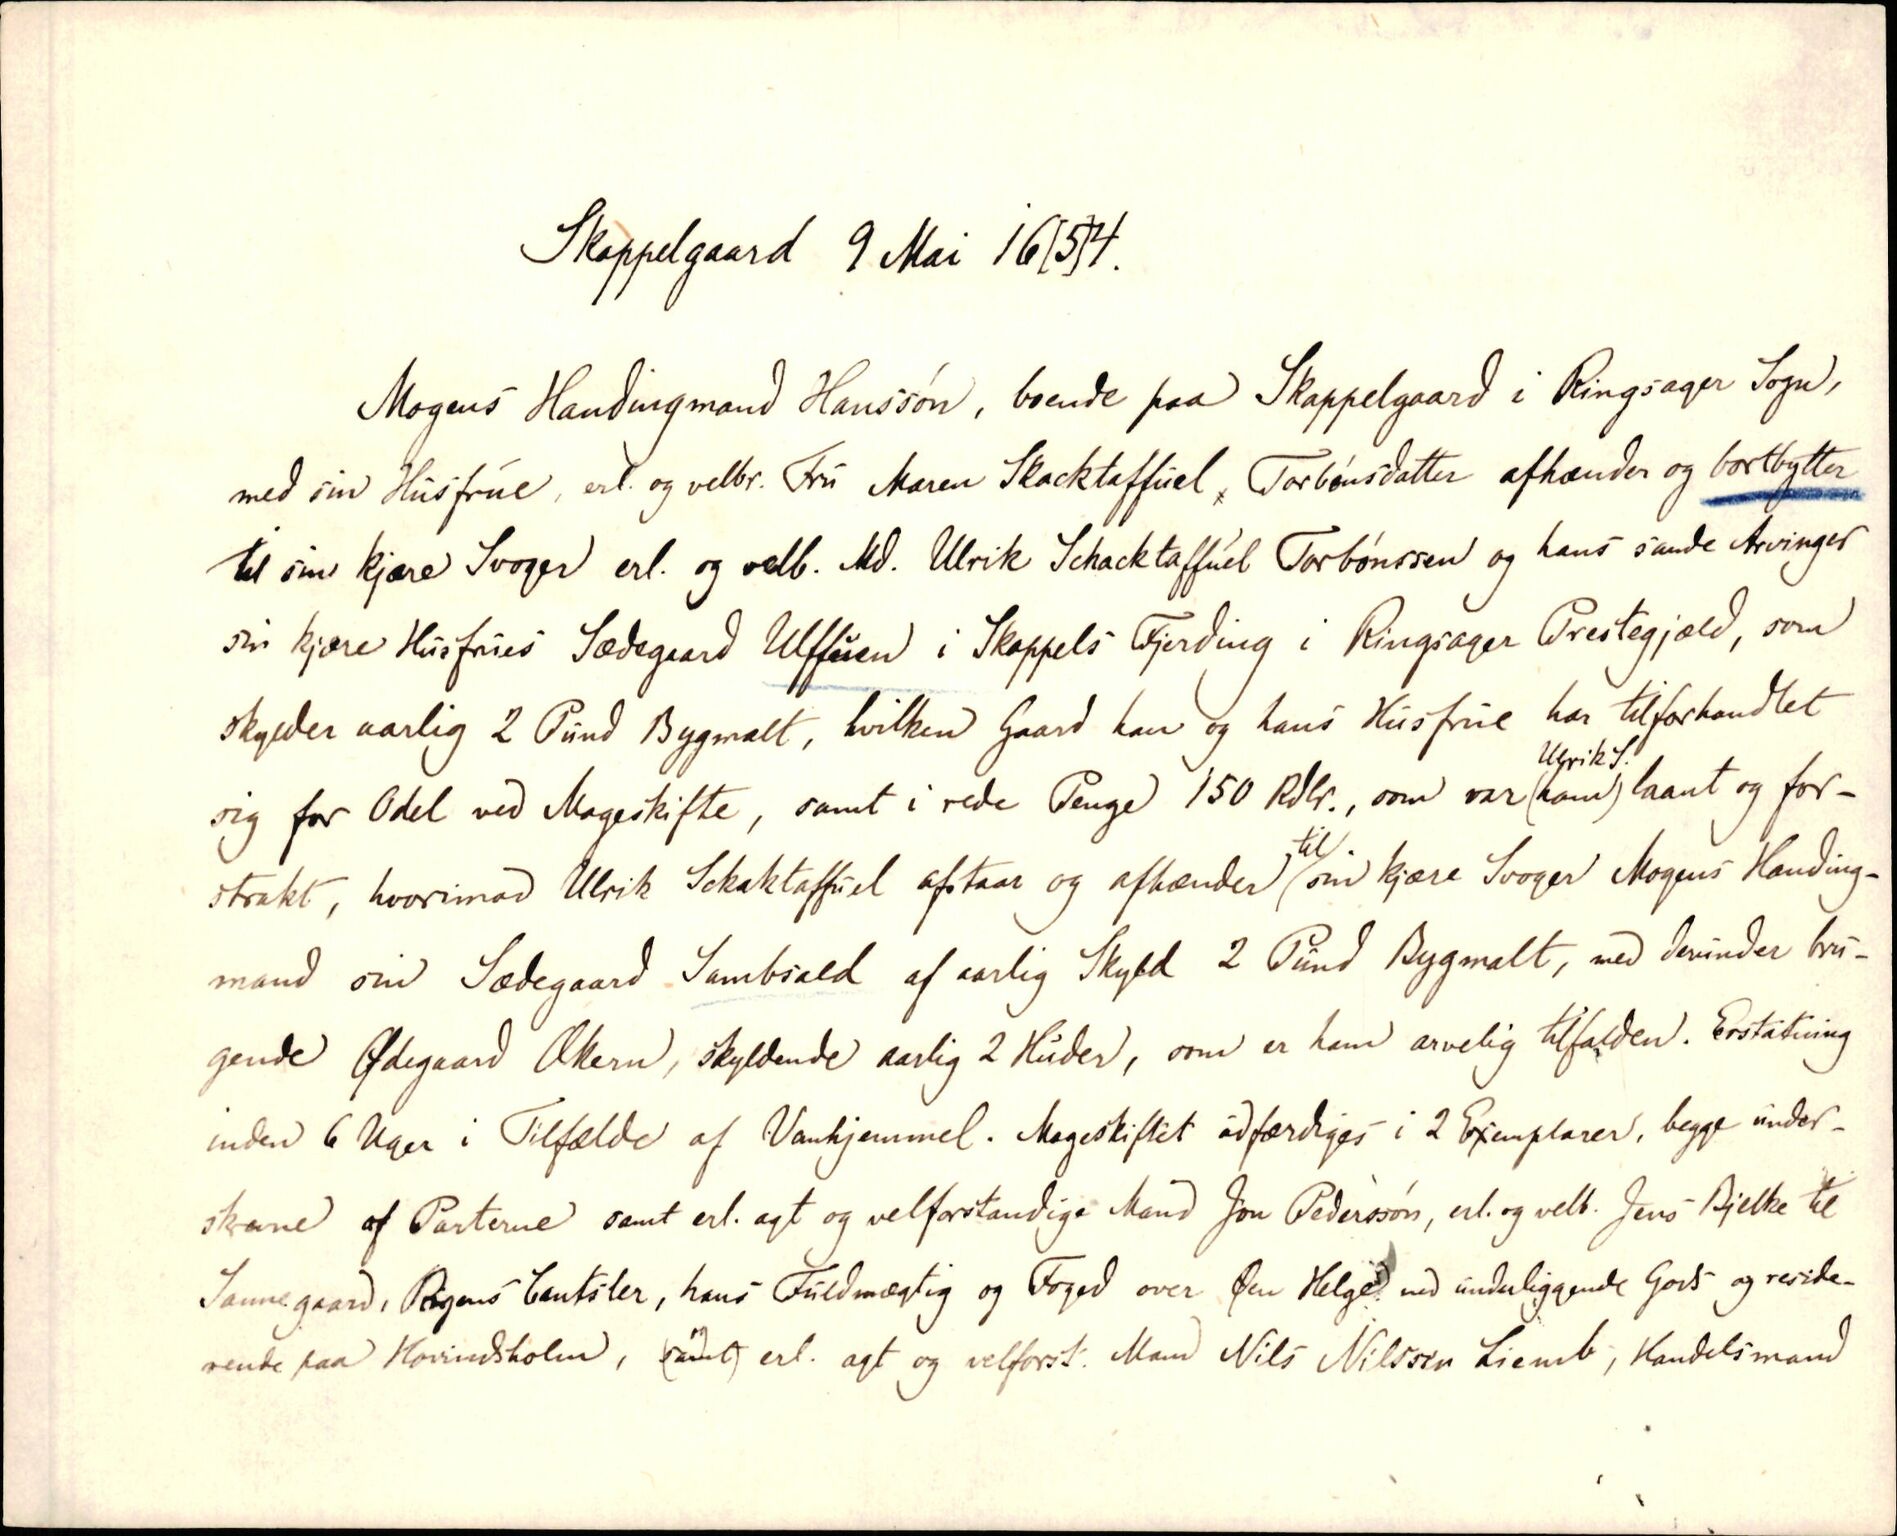 Skappelgaard 9 Mai 16[5]4.
Mogens Handingmand Hanssón, boende paa Skappelgaard i Ringsager Sogn,
med sin Husfrue, erl. og velbr. Fru Maren Skacktaffuel, Torbónsdatter afhænder og bortbytter
til sin kjære Svoger erl. og velb. Md. Ulrik Schacktaffuel Torbónssen og hans sande Arvinger
sin kjære Husfrues Sædegaard Ulffuen i Skappels Fjerding i Ringsager Prestegjæld, som
skylder aarlig 2 Pund Bygmalt, hvilken Gaard han og hans Husfrue har tilforhandlet
sig for Odel ved Mageskifte, samt i rede Penge 150 Rdlr., som var (ham) Ulrik S. laant og for-
strakt, hvorimod Ulrik Schaktaffuel afstaar og afhænder til sin kjære Svoger Mogens Handing-
mand sin Sædegaard Sambsald af aarlig Skyld 2 Pund Bygmalt, med derunder bru-
gende Ødegaard Økern, skyldende aarlig 2 Huder, som er ham arvelig tilfalden. Erstatning
inden 6 Uger i Tilfælde af Vanhjemmel. Mageskiftet udfærdiges i 2 Exemplarer, begge under-
skrevne af Parterne samt erl. agt og velforstandige Mand Jon Pederssón, erl. og velb. Jens Bjelke til
Sannegaard, Rigens Cantsler, hans Fuldmægtig og Foged over Øen Helgø med underliggende Gods og reside-
rende paa Hovindsholm, (samt) erl. agt og velforst. Mand Nils Nilssen Liemb, Handelsmand